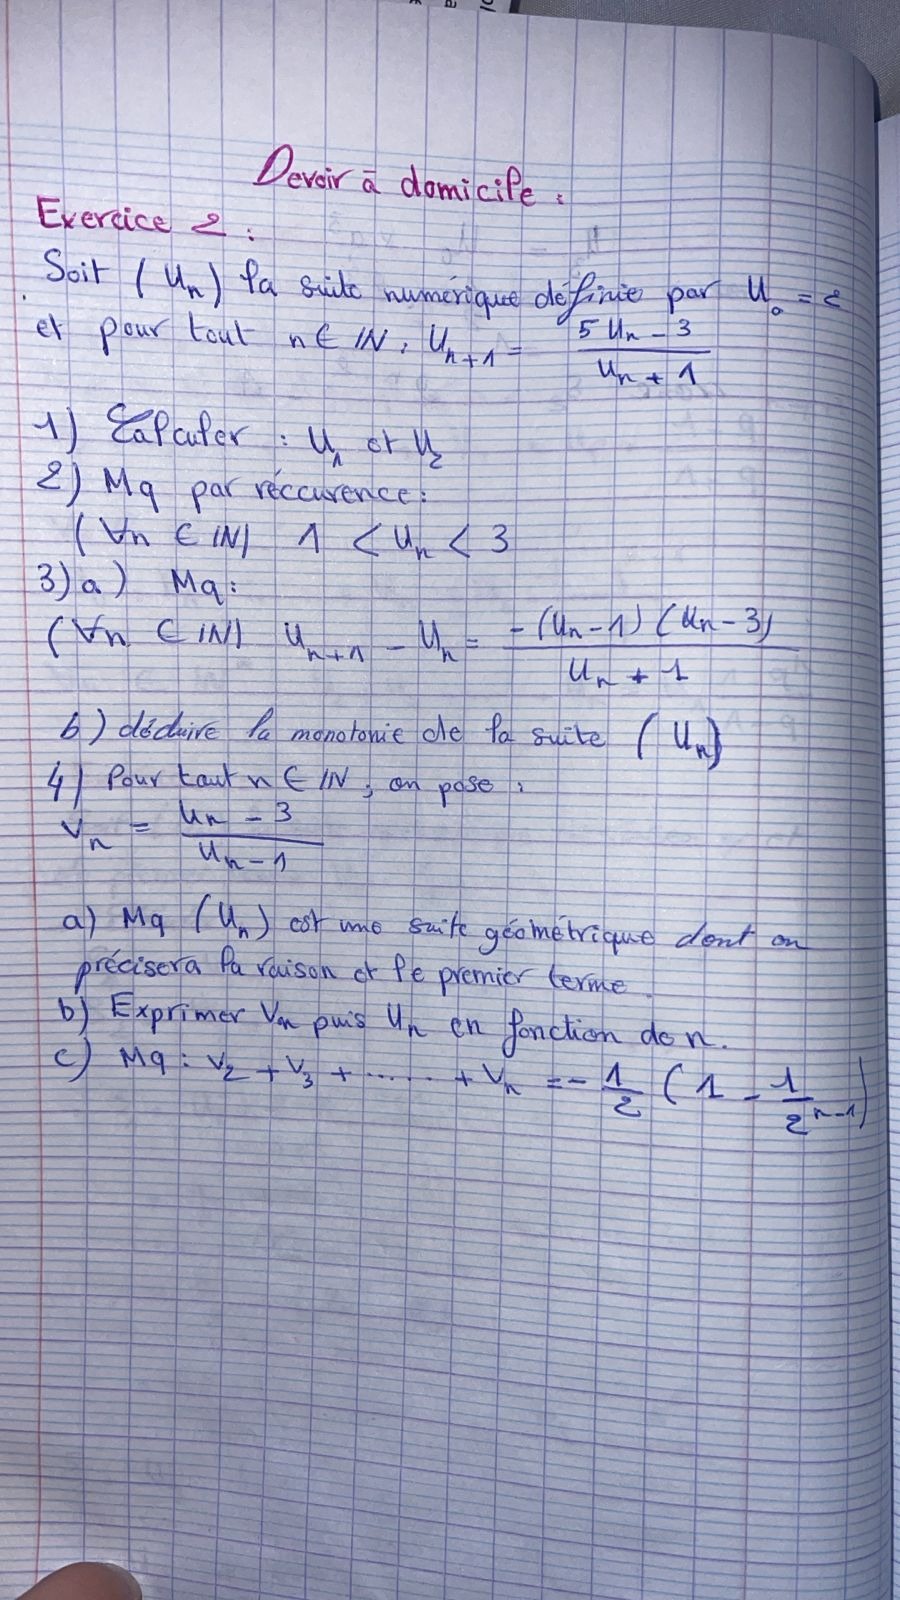 Devoir à domicile :
Exercice 2 :
Soit (Un) la suite numérique définie par U0 = 2
et pour tout n ∈ IN, Un+1 = (5 Un - 3) / (Un + 1)
1) Calculer : U1 et U2
2) Mq par réccurence :
(∀n ∈ IN) 1 < Un < 3
3) a) Mq :
(∀n ∈ IN) Un+1 - Un = -(Un - 1) (Un - 3) / (Un + 1)
b) déduire la monotonie de la suite (Un)
4) Pour tout n ∈ IN, on pose :
Vn = (Un - 3) / (Un - 1)
a) Mq (Un) est une suite géométrique dont on
précisera la raison et le premier terme.
b) Exprimer Vn puis Un en fonction de n.
c) Mq : V2 + V3 + ...... + Vn = - 1/2 (1 - 1/2^n-1)